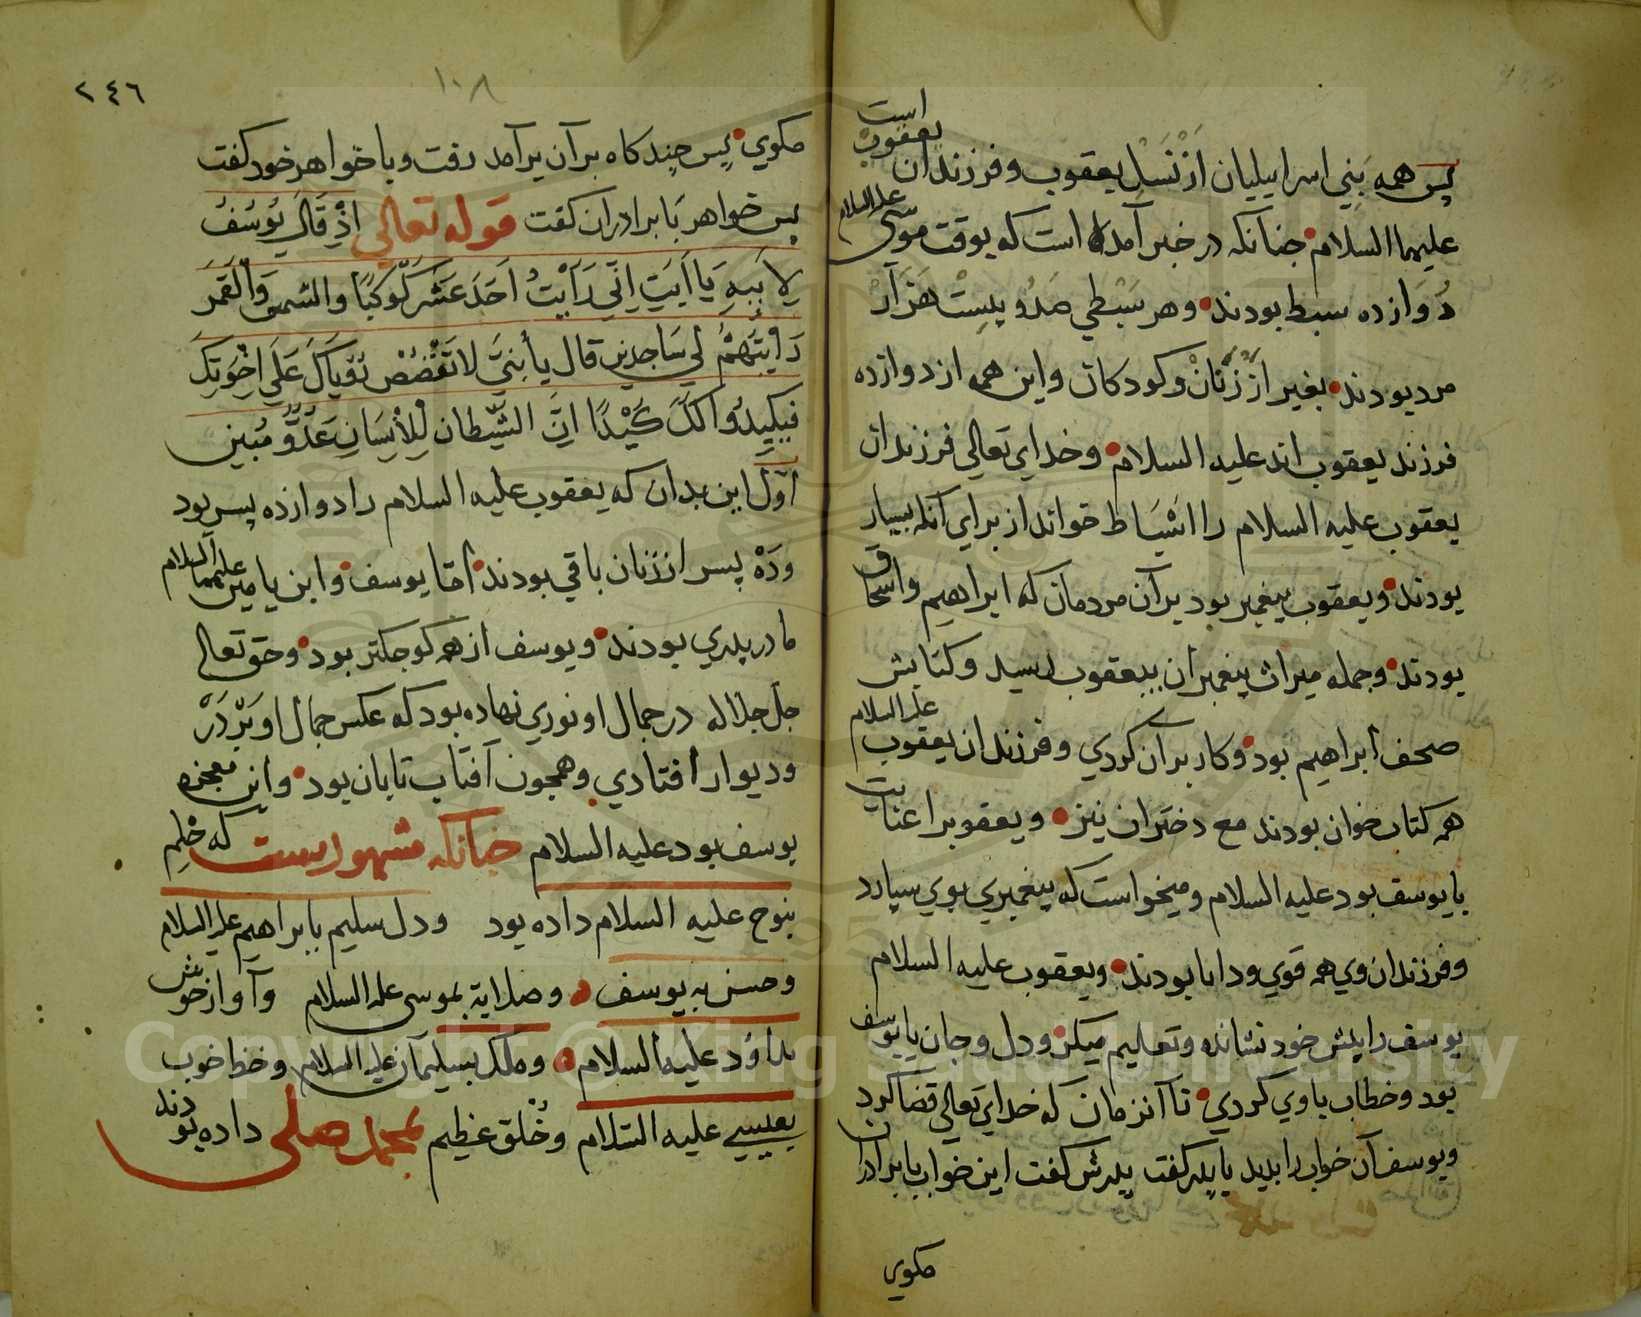 است
يعقوب
پس همه بَني اسراييليان ازْ نَسْلِ يعقوب و فرزندان
عليهما السلام جنانكه در خبر آمده است كه بوقت موسى عليه السلام
دُوَازده سبط بودند و هر سَبْطي صَدُو بيست هَزَار
مرد بودند بغير ازْ زَنَانْ و كودكان و اين همه از دوازده
فرزند يعقوب اند عليه السلام و خداي تعالي فرزندان
يعقوب عليه السلام را اسْبَاط خواند از براي آنكه بسيار
بودند و يعقوب پيغمبر بود بر آن مردمان كه ابراهيم و اسحاق
بودند و جمله ميراث پيغمبران بيعقوب رسيد و كتابش
صحف ابراهيم بود و كار بر آن كردي و فرزندان يعقوب عليه السلام
همه كتاب خوان بودند مع دختران نيز و يعقوبرا عنايت
با يوسف بود عليه السلام و ميخواست كه پيغمبري بوي سپارد
و فرزندان وي همه قوي و دانا بودند و يعقوب عليه السلام
يوسف را پيش خود نشانده و تعليم ميكرد و دل و جان با يوسف
بود و خطاب باوي كردي تا آنزمان كه خداي تعالي قضا كرد
و يوسف آن خواب را بديد با پدر گفت پدرش گفت اين خواب با برادران
مكوي
١٠٨
٢٤٦
مكوي پس چند كاه بر آن بر آمد رفت و با خواهر خود كفت
پس خواهر با برادران كفت قوله تعالي اِذْ قَالَ يُوسُفُ
لِاَبيهِ يَا اَبَتِ اِنّي رَاَيْتُ اَحَدَ عَشَرَ كَوكَبًا والشمس وَالْقَمَرَ
رَاَيْتُهُمْ لي سَاجدين قال يا بُنَيَّ لا تَقْصُصْ رُؤيَاكَ عَلَي اِخْوَتِكَ
فيَكِيدُوا لَكَ كَيْدًا اِنَّ الشَّيطان لِلْاِنسَانِ عَدُوٌّ مُبين
اوّل اين بدان كه يعقوب عليه السلام را دوازده پسر بود
و دَهْ پسر از زنان باقي بودند امّا يوسف و ابن يامين عليهما السلام
مادر پدري بودند و يوسف از همه كوجكتر بود و حق تعالى
جل جلاله در جمال او نوري نهاده بود كه عكس جمال او بَرْدَرْ
و ديوار افتادي و همچون آفتاب تابان بود و اين معجزه
يوسف بود عليه السلام جنانكه مشهورست كه حِلم
بنوح عليه السلام داده بود و دل سليم بابراهيم عليه السلام
و حسن به يوسف و صلابة بموسى عليه السلام و آواز خوش
بداوُد عليه السلام و ملك بسليمان عليه السلام و خط خوب
بعيسي عليه السلام و خُلق عظيم بمحمد صلى داده بودند